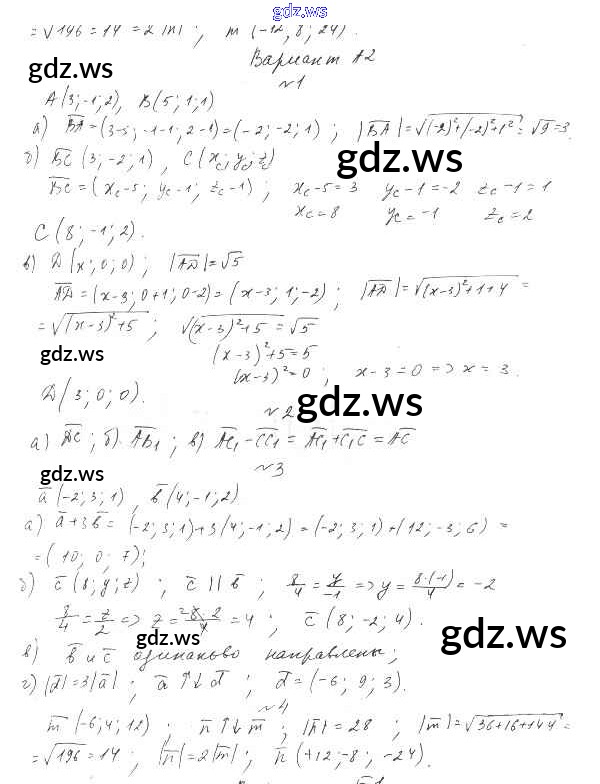 gdz.ws
= √196 = 14 = 2|n| ; m (-12; 8; 24).
Вариант А2
gdz.ws
№1
A(3;-1;2), B(5;1;1)
а) BA=(3-5; -1-1; 2-1)=(-2;-2;1) ; |BA|=√(-2)²+(-2)²+1² = √9=3.
б) BC (3;-2;1) , C(xc; yc; zc)
gdz.ws
BC=(xc-5; yc-1; zc-1) ; xc-5=3 yc-1=-2 zc-1=1
xc=8 yc=-1 zc=2
C(8;-1;2).
в) D(x;0;0) ; |AD|=√5
AD=(x-3; 0+1; 0-2)=(x-3; 1; -2) ; |AD|=√(x-3)²+1+4 =
=√(x-3)²+5 ; √(x-3)²+5 = √5
gdz.ws
(x-3)²+5=5
(x-3)²=0 ; x-3=0 => x=3.
D(3;0;0).
gdz.ws
№2
а) DC ; б) AB₁ ; в) AC₁-CC₁ = AC₁+C₁C = AC
gdz.ws
№3
a(-2;3;1) , b(4;-1;2)
а) a+3b = (-2;3;1)+3(4;-1;2)=(-2;3;1)+(12;-3;6) =
=(10; 0; 7);
б) c(8;y;z) ; c || b ; 8/4 = y/-1 => y = 8·(-1)/4 = -2
8/4 = z/2 => z = 8·2/4 = 4 ; c(8;-2;4).
gdz.ws
gdz.ws
в) b и c одинаково направлены;
г) |d|=3|a| ; a↑↓d ; d=(-6; 9; 3).
№4
m(-6;4;12) ; n↑↓m ; |n|=28 ; |m|=√36+16+144 =
=√196=14 ; |n|=2|m| ; n(+12;-8; -24).
gdz.ws